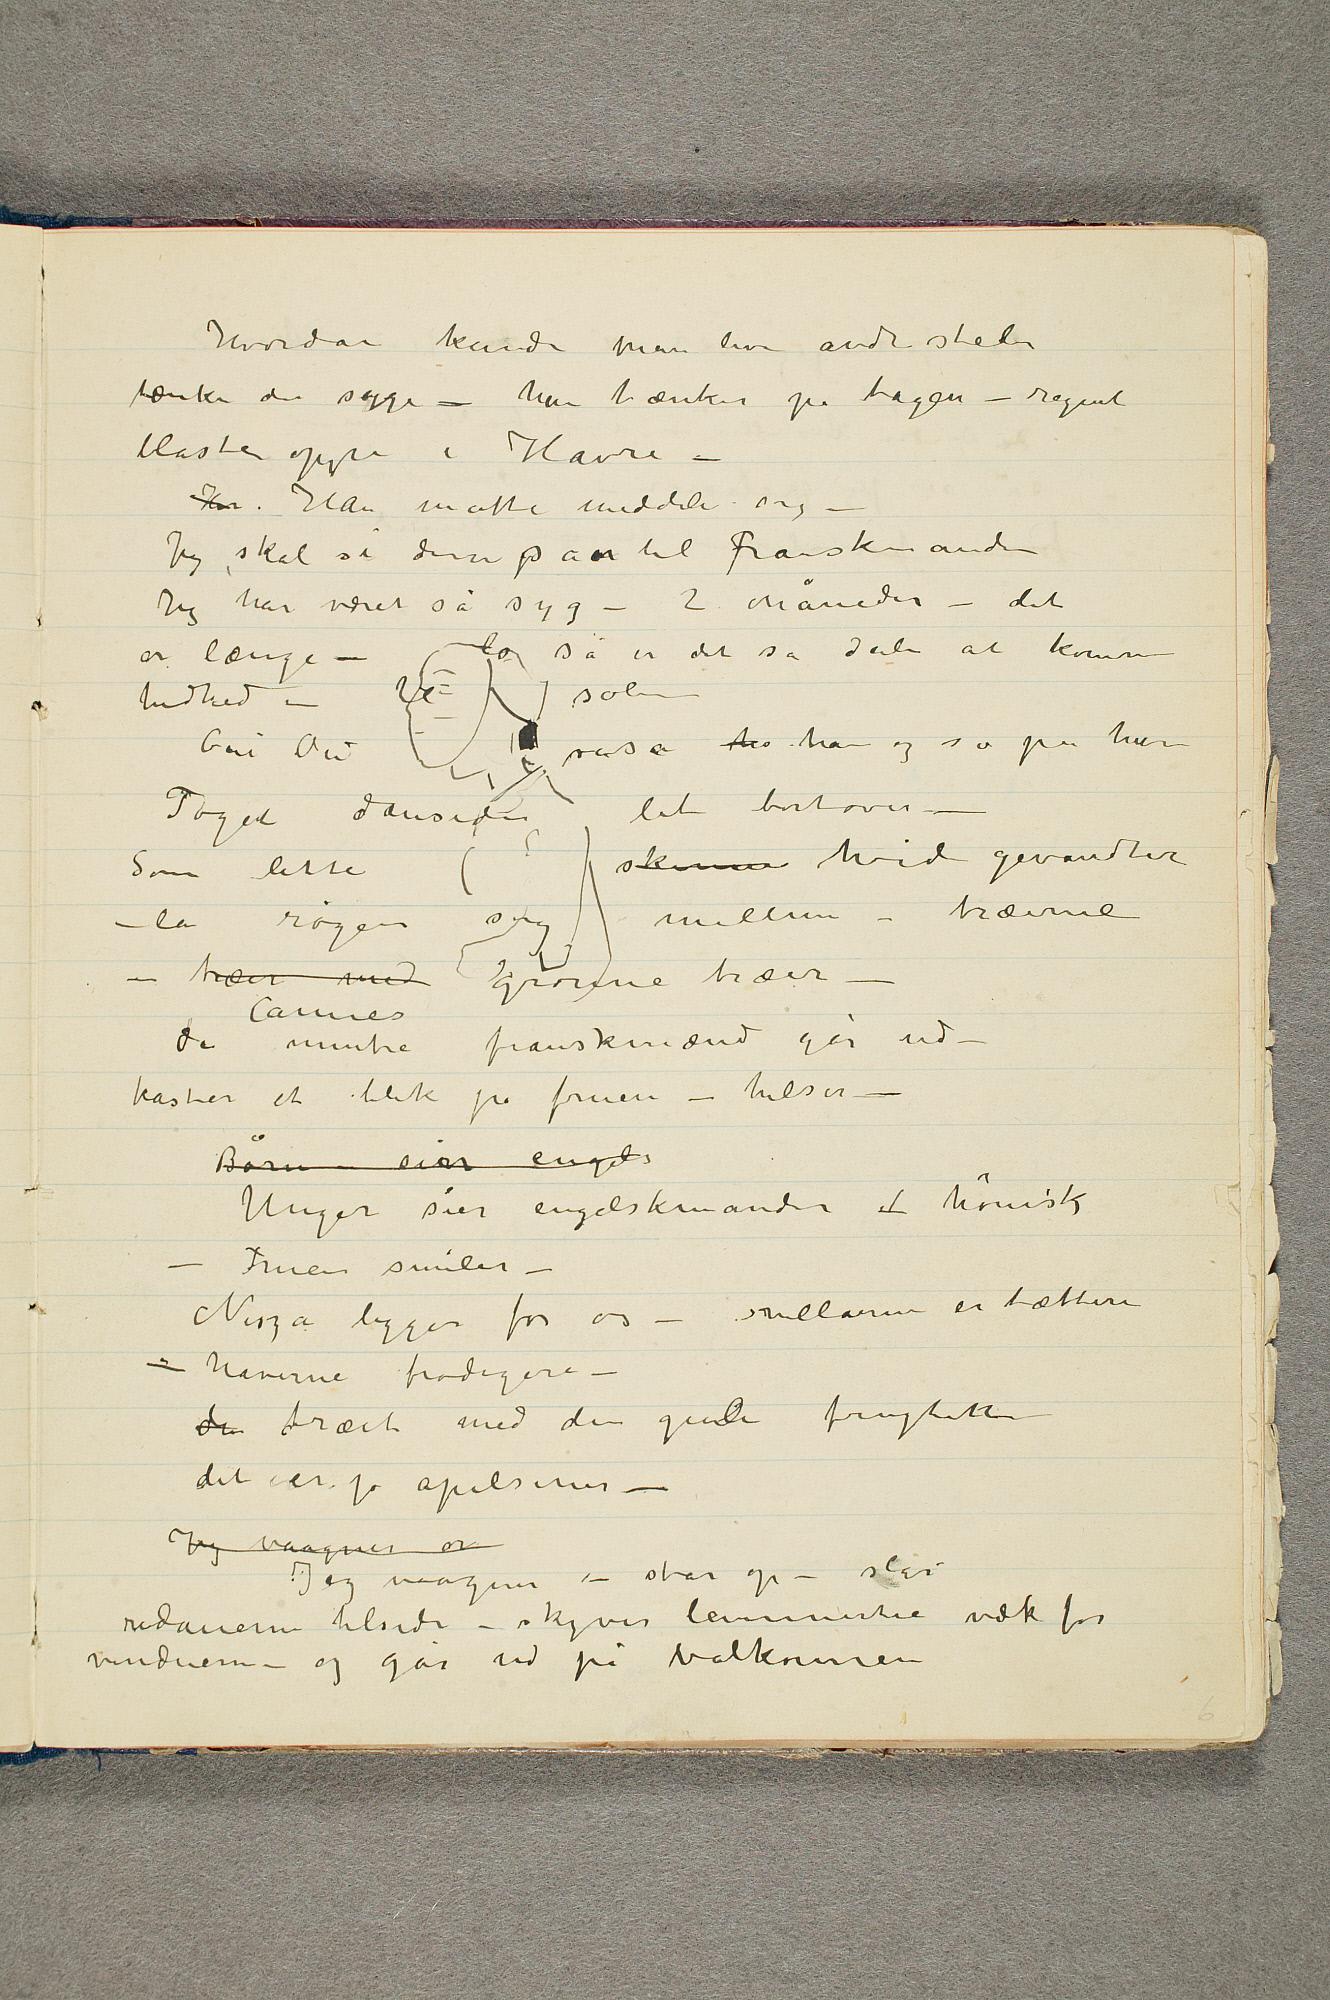 Hvordan kunde man leve andre steder
tænker den syge – han tænker på tågen – regnet
blåsten oppe i Havre –
Han. Han måtte meddele sig –
Jeg skal si dem sa an til franskmanden
Jeg har været så syg – 2 måneder – det
er længe – så er det så deili at komme
hidhed – solen
han og så på ham
Toget let bortover –
Som lette skinne hvide gevandter
– la røgen sig mellem – træerne
– træer med grønne træer –
Cannes
de muntre franskmænd går ud –
kaster et blik på fruen – hilser –
Børn – sier engels
Unger sier engelskmanden hånisk
– Fruen smiler –
Nizza ligger for os – villaerne er tættere
– haverne frodigere –
de træet med den gule frugten
det er jo apelsiner –
Jeg vaagner om
Jeg vaagner – står op – slår
gardinerne tilside – skyver lemmerne væk for
vinduerne – og går ud på balkonnen
6